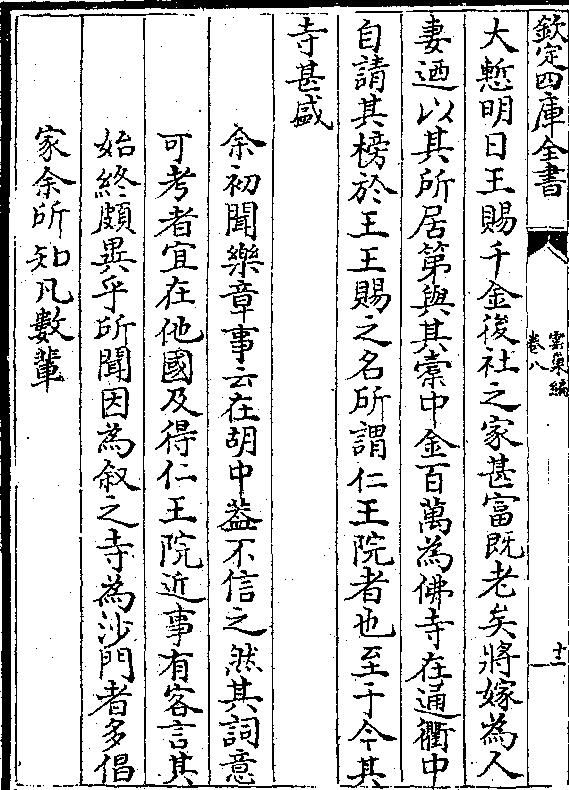 欽定四庫全書
雲巢編
卷八
十二
大慙明日王賜千金後社之家甚富既老矣將嫁為人
妻迺以其所居第與其橐中金百萬為佛寺在通衢中
自請其榜於王王賜之名所謂仁王院者也至于今其
寺甚盛
余初聞樂章事云在胡中葢不信之然其詞意
可考者宜在他國及得仁王院近事有客言其
始終頗異乎所聞因為叙之寺為沙門者多倡
家余所知凡數輩